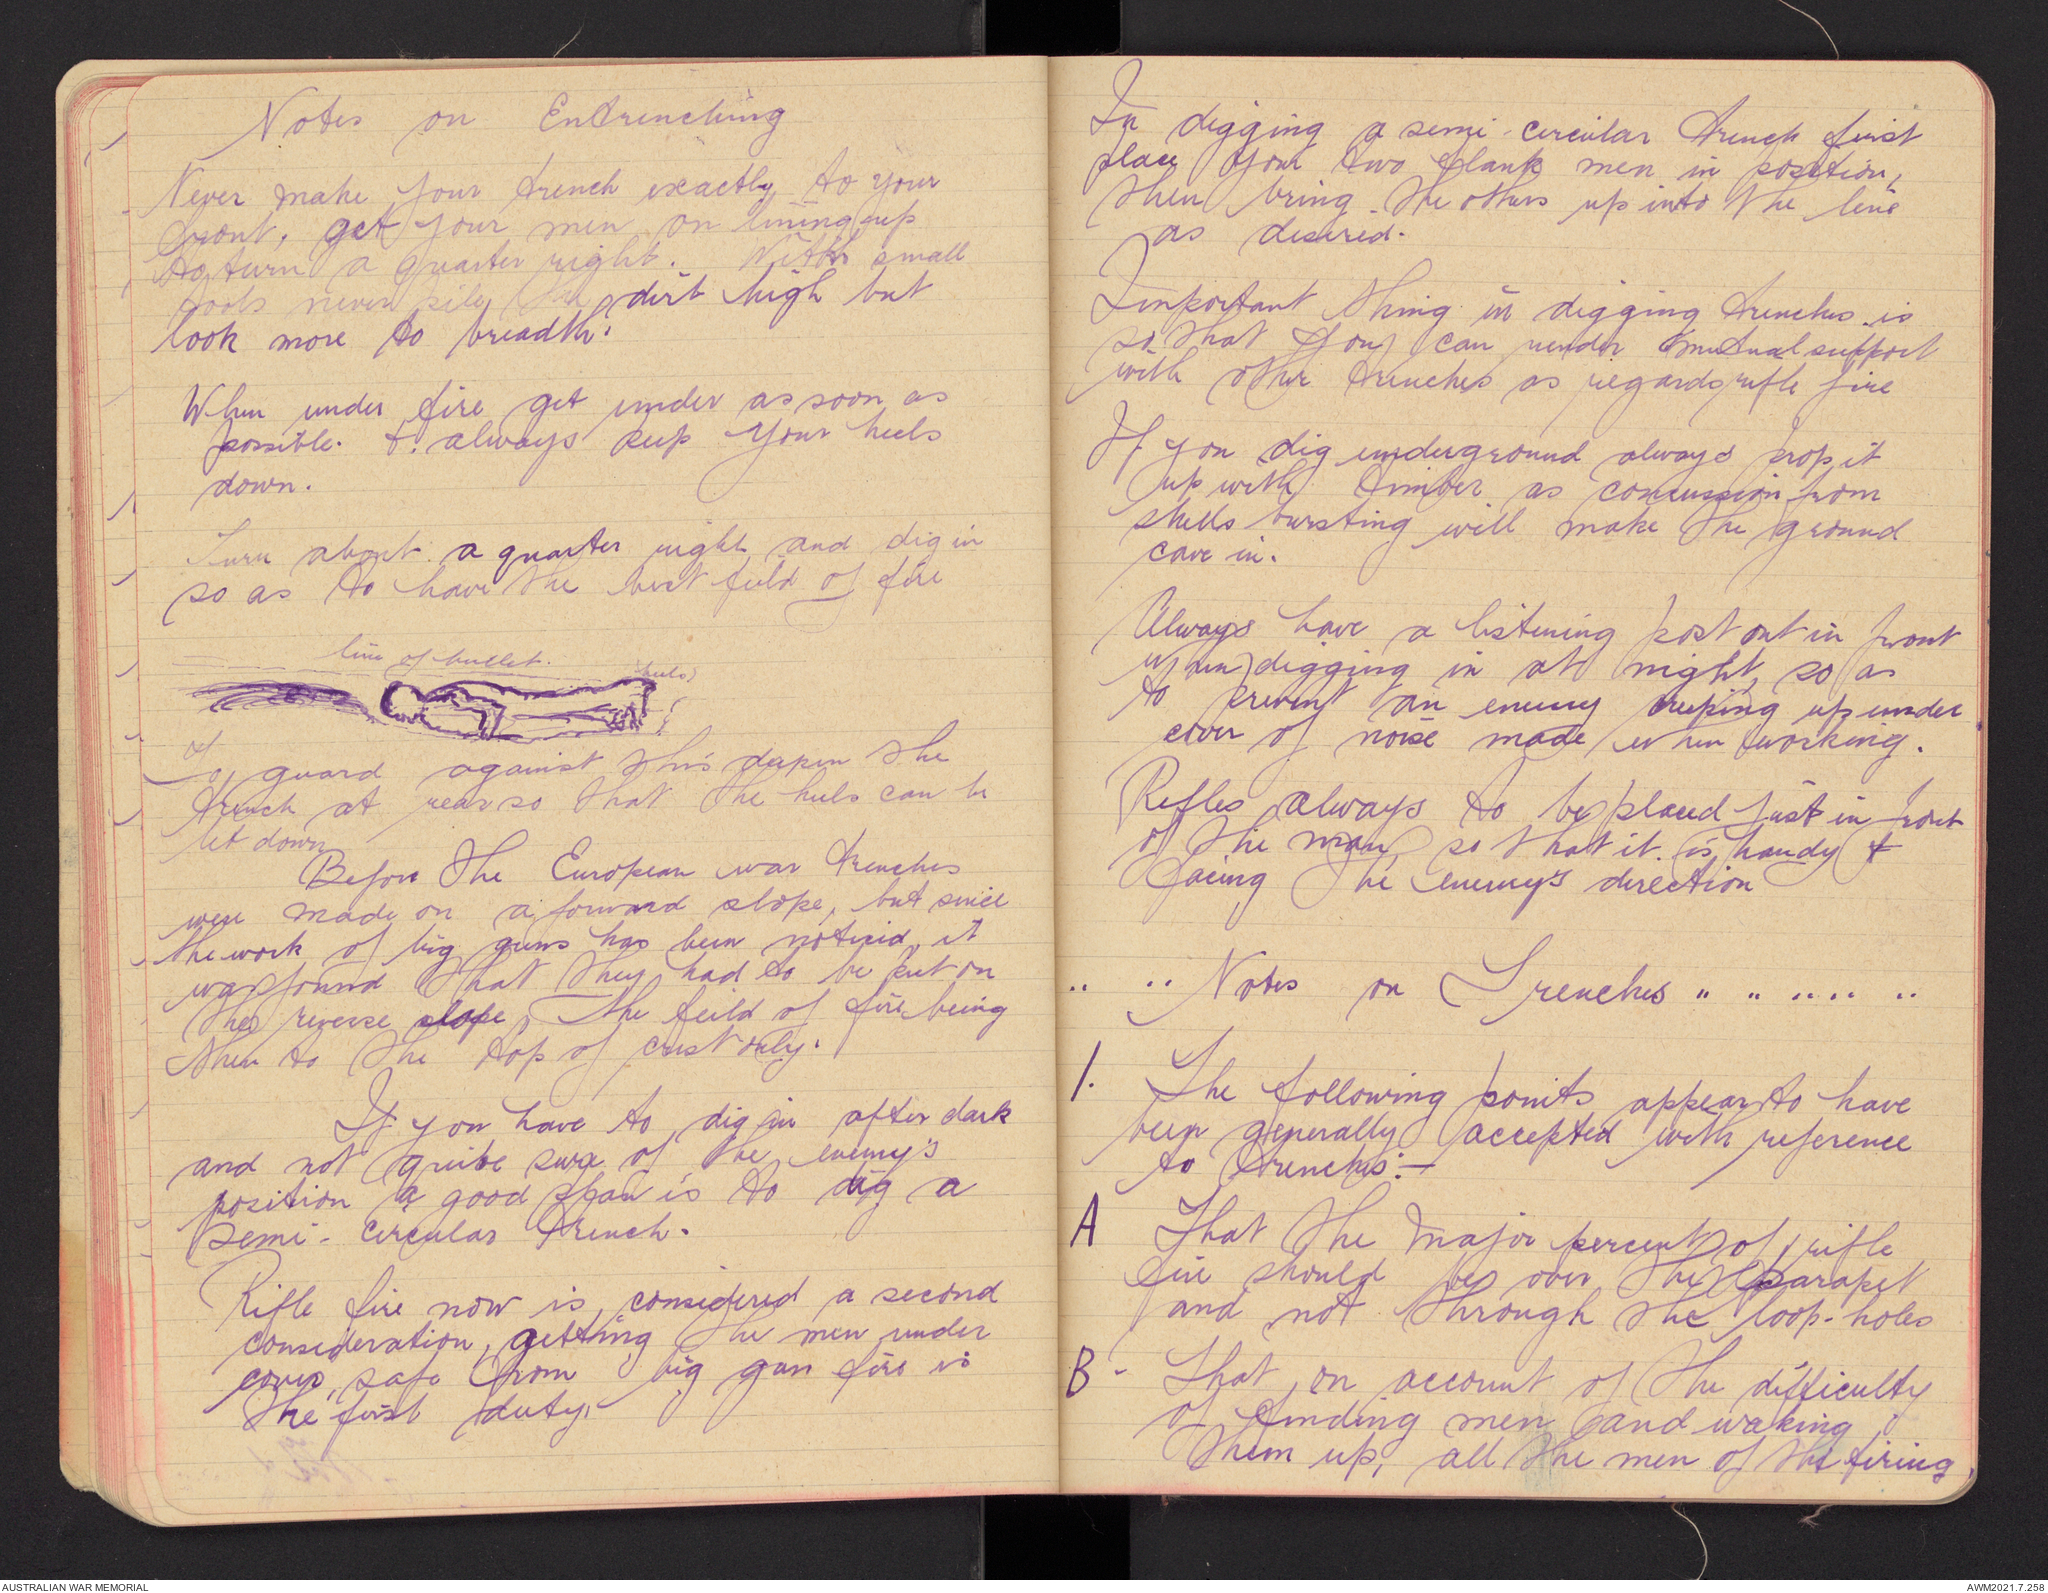 Notes on Entrenching
Never make your trench exactly to your
front, get your men on lining up
to turn a quarter right. With small
tools never pile the dirt high but
look more to breadth.
When under fire get under as soon as
possible. & always keep your heels
down.
Turn about a quarter right and dig in
so as to have the best feild of fire
line of bullet.
heels
To guard against this deepen the
trench at rear so that the heels can be
let down
Before the European war trenches
were made on a forward slope, but since
the work of big guns has been noticed, it
was found that they had to be put on
the reverse slope, the feild of fire being
then to the top of crest only.
If you have to dig in after dark
and not quite sure of the enemy's
position a good plan is to dig a
semi-circular trench.
Rifle fire now is considered a second
consideration, getting the men under
cover, safe from big gun fire is
the first duty.
In digging a semi-circular trench first
place your two flank men in position,
then bring the others up into the line
as desired.
Important thing in digging trenches is
so that you can render mutual support
with other trenches as regards rifle fire
If you dig underground always prop it
up with timber as concussion from
shells bursting will make the ground
cave in.
Always have a listening post out in front
when digging in at night, so as
to prevent an enemy creeping up under
cover of noise made when working.
Rifles always to be placed just in front
of the man, so that it is handy &
facing the enemy's direction
.. .. Notes on Trenches " " .. .. ..
1. The following points appear to have
been generally accepted with reference
to trenches:-
A That the major percent of rifle
fire should be over the parapet
and not through the loop-holes
B - That, on account of the difficulty
of finding men and waking
them up, all the men of the firing
AUSTRALIAN WAR MEMORIAL
AWM2021.7.258